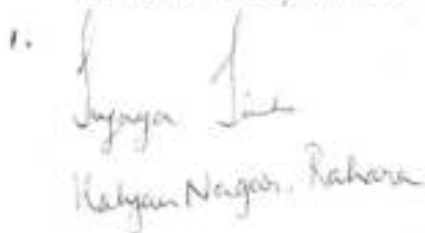 1.
Sujaya
Kalyan Nagar. Rahara